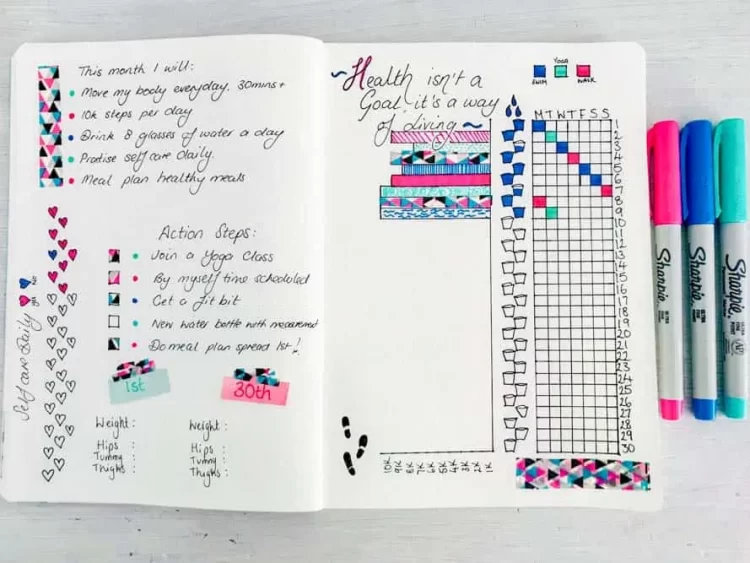 This month I will:
Move my body everyday. 30mins+
10k steps per day
Drink 8 glasses of water a day
Practise self care daily.
Meal plan healthy meals
Action Steps:
Join a Yoga Class
By myself time scheduled
Get a fit bit
New water bottle with measurement
Do meal plan spread 1st!
no
yes
Self care Daily
1st
30th
Weight:
Hips :
Tummy :
Thighs :
Weight:
Hips :
Tummy :
Thighs :
~Health isn't a
Goal it's a way
of living~
10K 9K 8K 7K 6K 5K 4K 3K 2K 1K
YOGA
SWIM
WALK
M T W T F S S
1
2
3
4
5
6
7
8
9
10
11
12
13
14
15
16
17
18
19
20
21
22
23
24
25
26
27
28
29
30
Sharpie
Sharpie
Sharpie